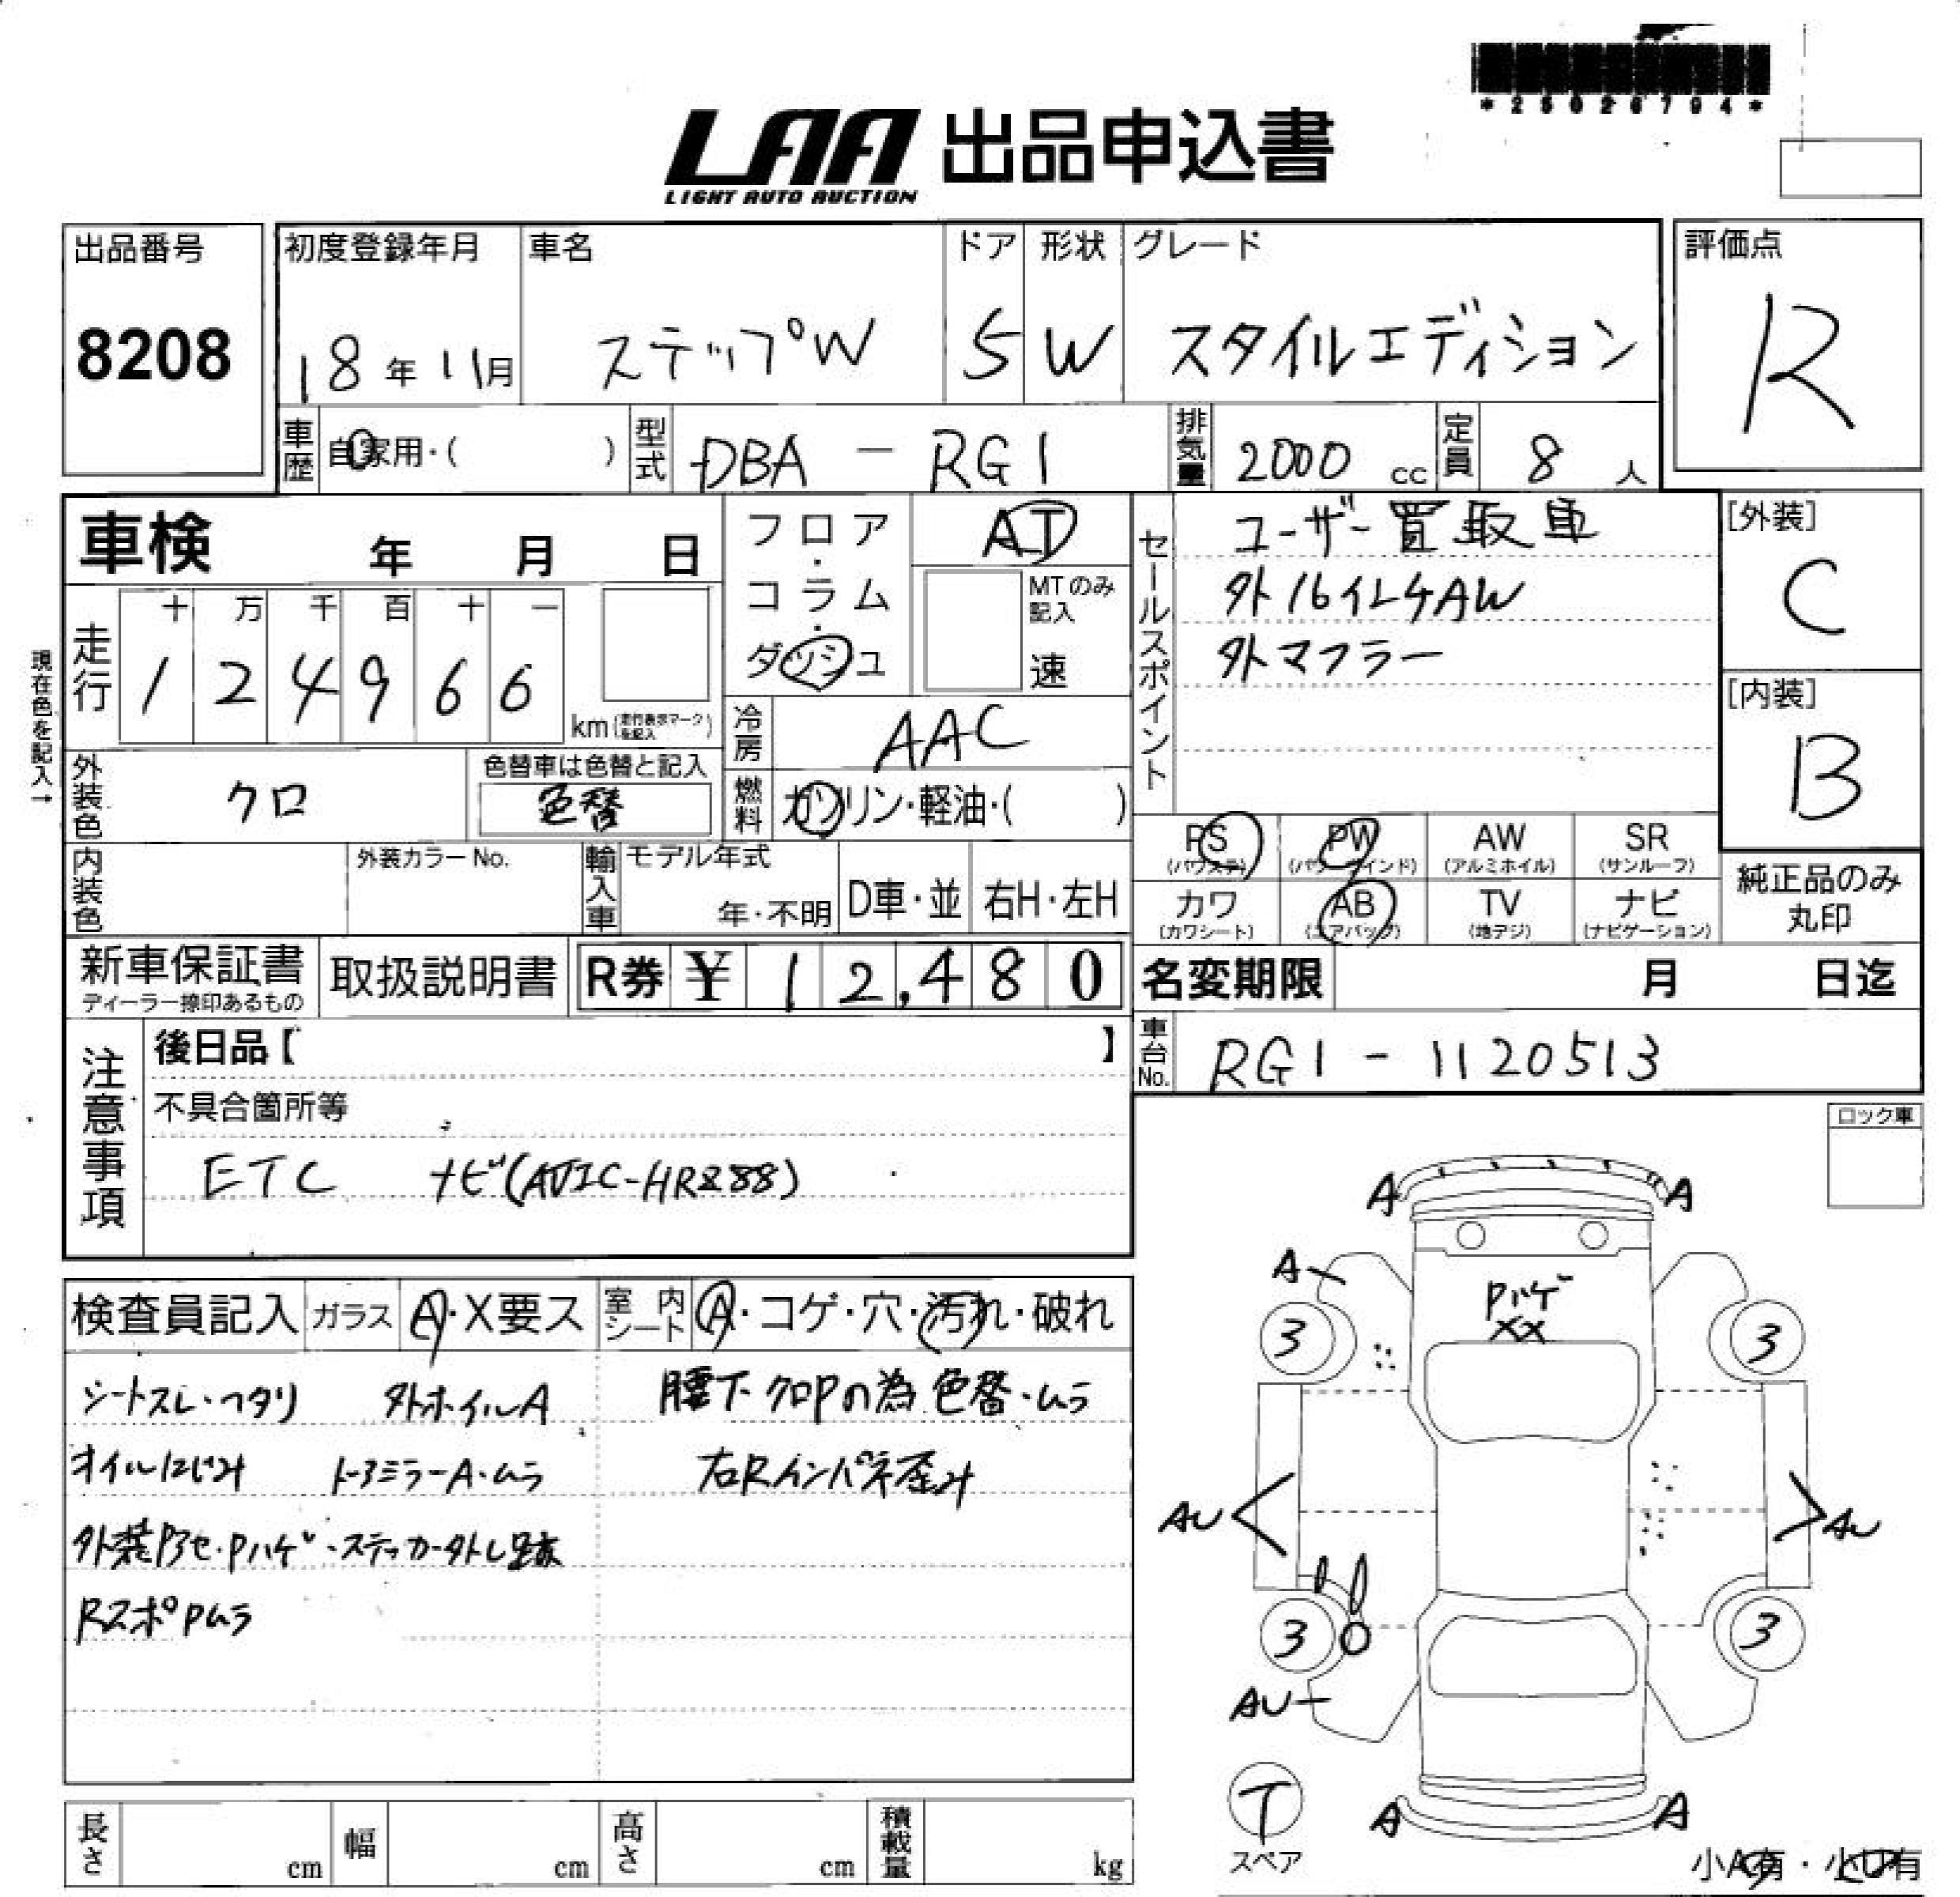 *25026794*
LAA 出品申込書
LIGHT AUTO AUCTION
出品番号 初度登録年月 車名 ドア 形状 グレード 評価点
8208 18年11月 ステップW 5 W スタイルエディション R
車歴 自家用・( ) 型式 DBA - RG1 排気量 2000 cc 定員 8 人
車検 年 月 日
フロア・コラム・ダッシュ
AT
MTのみ記入
速
セールスポイント
ユーザー買取車
外16インチAW
外マフラー
[外装]
C
[内装]
B
現在色を記入→
走行 十 万 千 百 十 一
1 2 4 9 6 6
km(走行表示マークを記入)
冷房 AAC
外装色 クロ 色替車は色替と記入
色替
燃料 ガソリン・軽油・( )
PS (パワステ) PW (パワーウインド) AW (アルミホイル) SR (サンルーフ)
カワ (カワシート) AB (エアバック) TV (地デジ) ナビ (ナビゲーション)
純正品のみ
丸印
内装色 外装カラーNo. 輸入車 モデル年式
年・不明 D車・並 右H・左H
新車保証書 取扱説明書 R券 ¥ 12,480
ディーラー捺印あるもの
名変期限 月 日迄
車台No. RG1 - 1120513
注意事項
後日品【 】
不具合箇所等
ETC ナビ(AVIC-HRZ88)
ロック車
検査員記入 ガラス A・X要ス 室内シート A・コゲ・穴・汚れ・破れ
シートスレ・ヘタリ 外ホイルA 腰下クロPの為色替・ムラ
オイルにじみ ドアミラーA・ムラ 右Rインパネ歪み
外装Pアセ・Pハゲ・ステッカー外し跡
RスポPムラ
A A
A
Pハゲ
XX
3 3
AU AU
3 3
AU
T
スペア
A A
小A有・小U有
長さ cm 幅 cm 高さ cm 積載量 kg